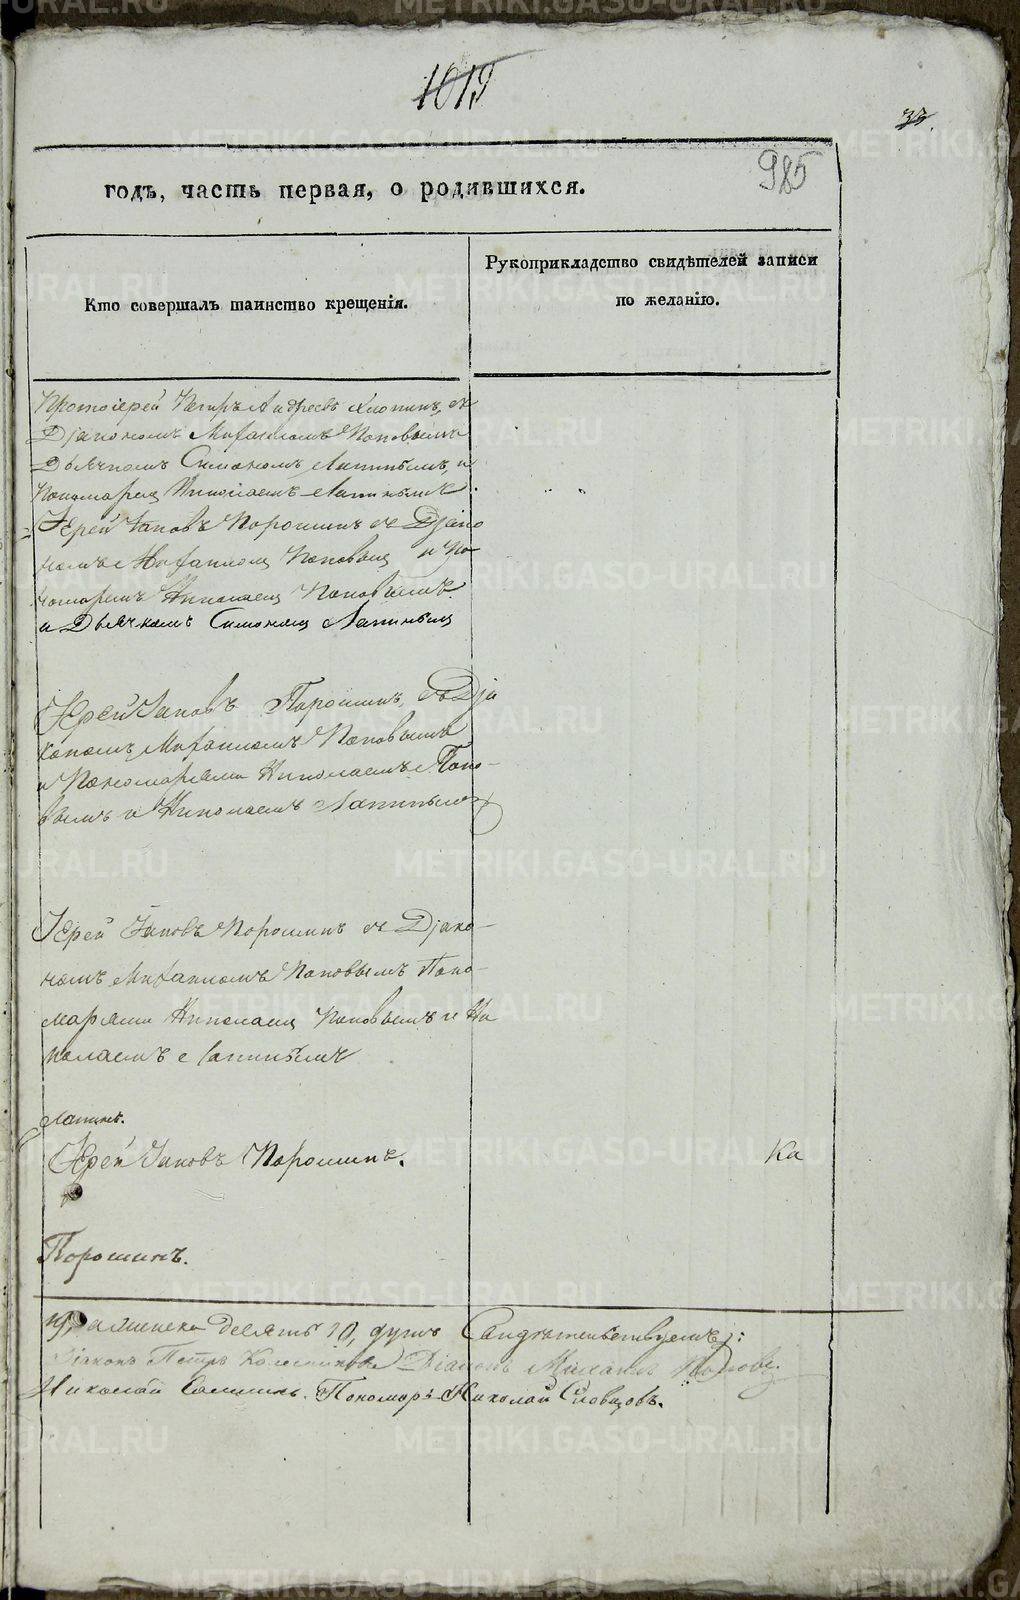 1019
33.
985
годъ, часть первая, о родившихся.
Кто совершалъ таинство крещенія.
Рукоприкладство свидѣтелей записи
по желанію.
Протоіерей Петръ Андреевъ съ
Діакономъ Михаиломъ Поповымъ
Дьячкомъ Симономъ Лапинымъ, и
Пономаремъ Николаемъ Лапинымъ.
Іерей Іаковъ Порошинъ съ Діако
номъ Михаиломъ Поповым и По
номаремъ Николаем Поповымъ
и Дьячкомъ Симоном Лапиным
Іерей Іаковъ Порошинъ, съ Діа
кономъ Михаиломъ Поповымъ
и Пономарями Николаемъ Попо-
вымъ и Николаемъ Лапинымъ
Іерей Іаковъ Порошинъ съ Діако-
номъ Михаиломъ Поповымъ Поно-
марями Николаем Поповымъ и Ни
колаемъ Лапинымъ
Лапинъ.
Іерей Іаковъ Порошинъ.
Ка
Порошинъ.
десять 10, душъ Свидѣтельствуемъ:
Діаконъ Петръ Колесниковъ Діаконъ Михаилъ Поповъ.
Николай Пономарь Николай Словцовъ.
METRIKI.GASO-URAL.RU